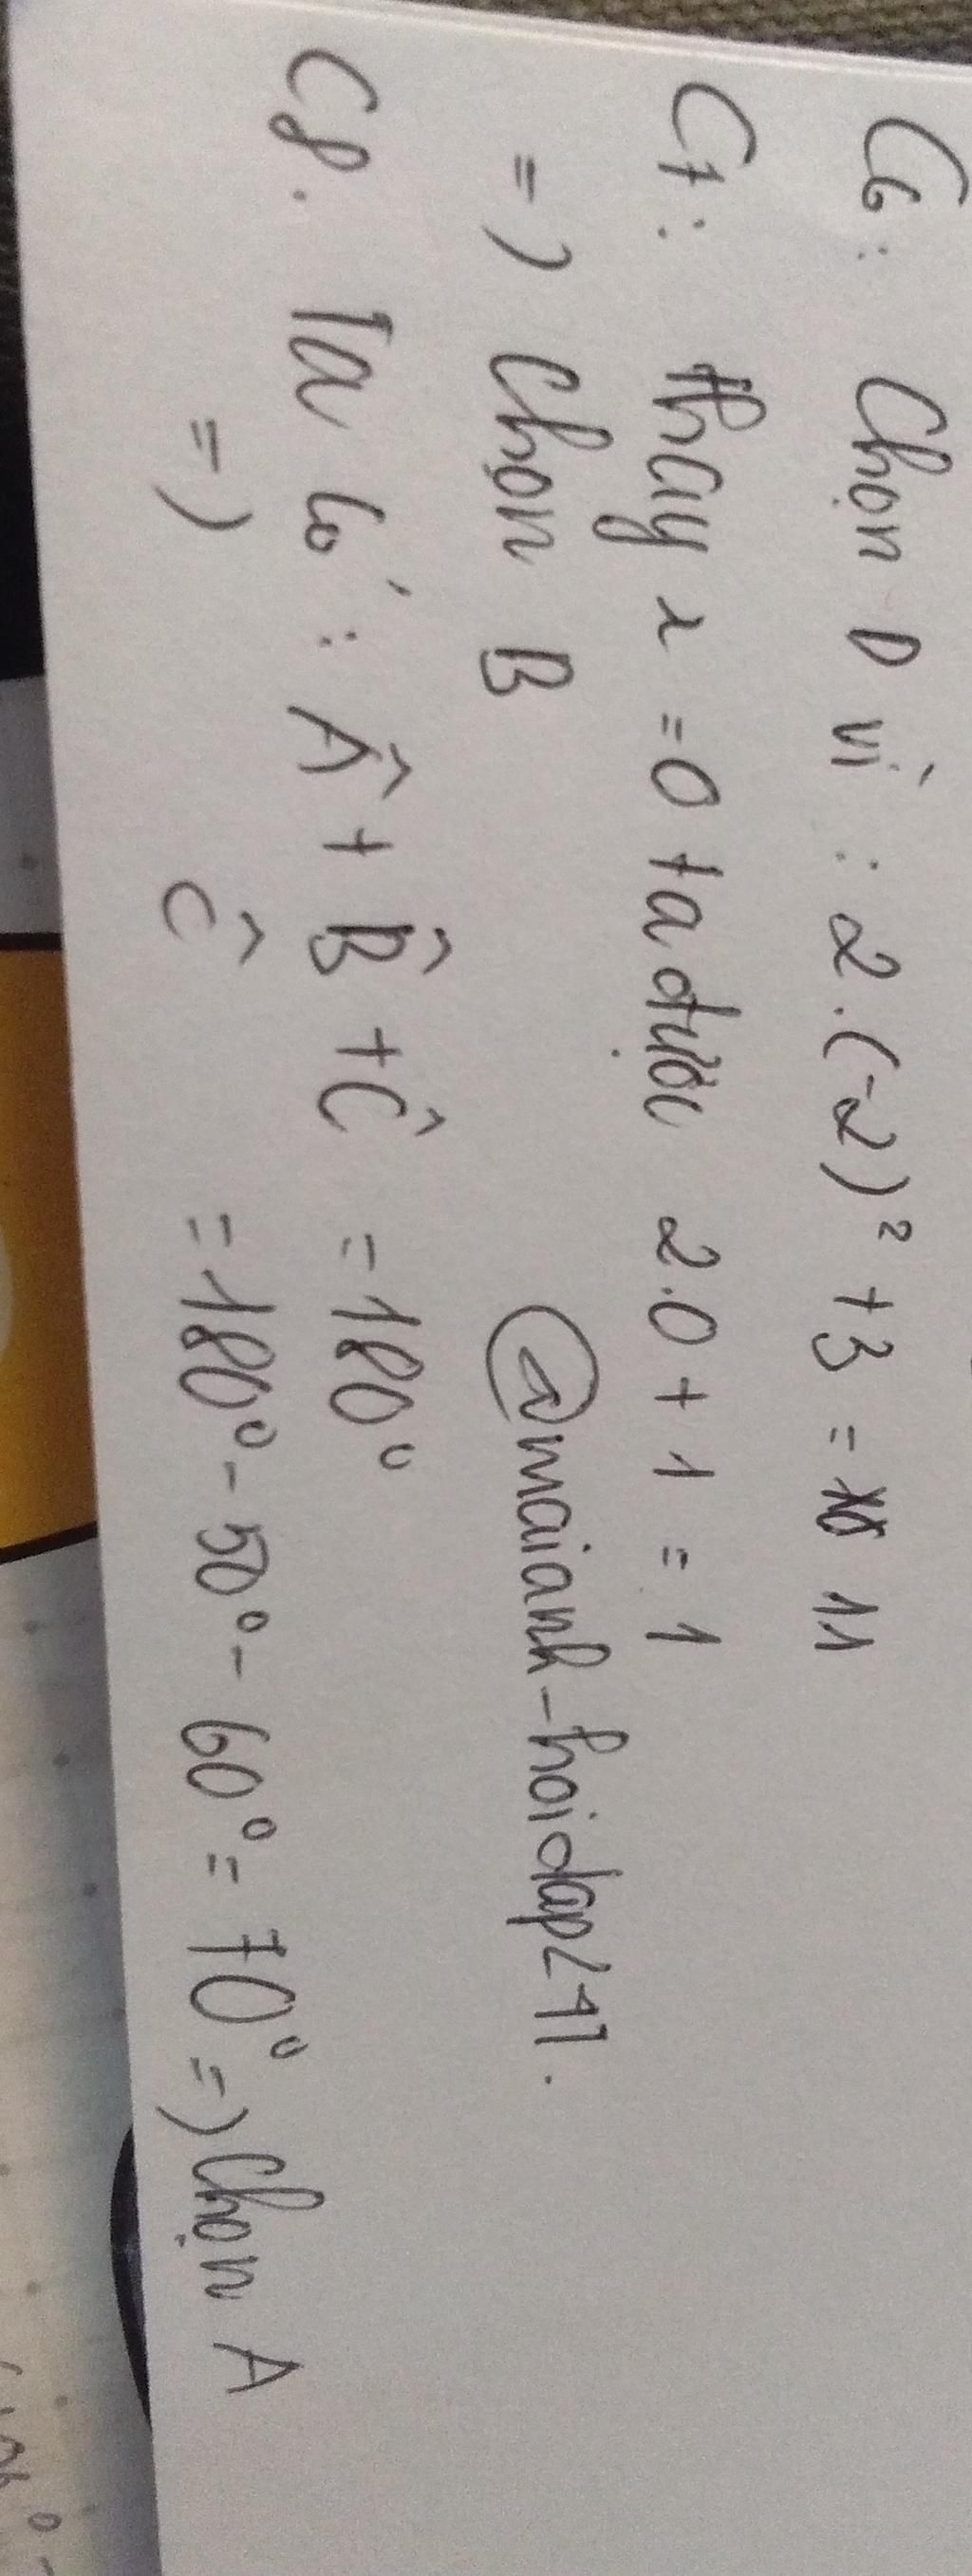 C6: Chọn D vì : 2.(-2)² + 3 = 11
C7: thay x = 0 ta được 2.0 + 1 = 1
=) Chọn B
@maianh-hoidap247.
C8. Ta có : Â + B̂ + Ĉ = 180°
=) Ĉ = 180° - 50° - 60° = 70° =) Chọn A